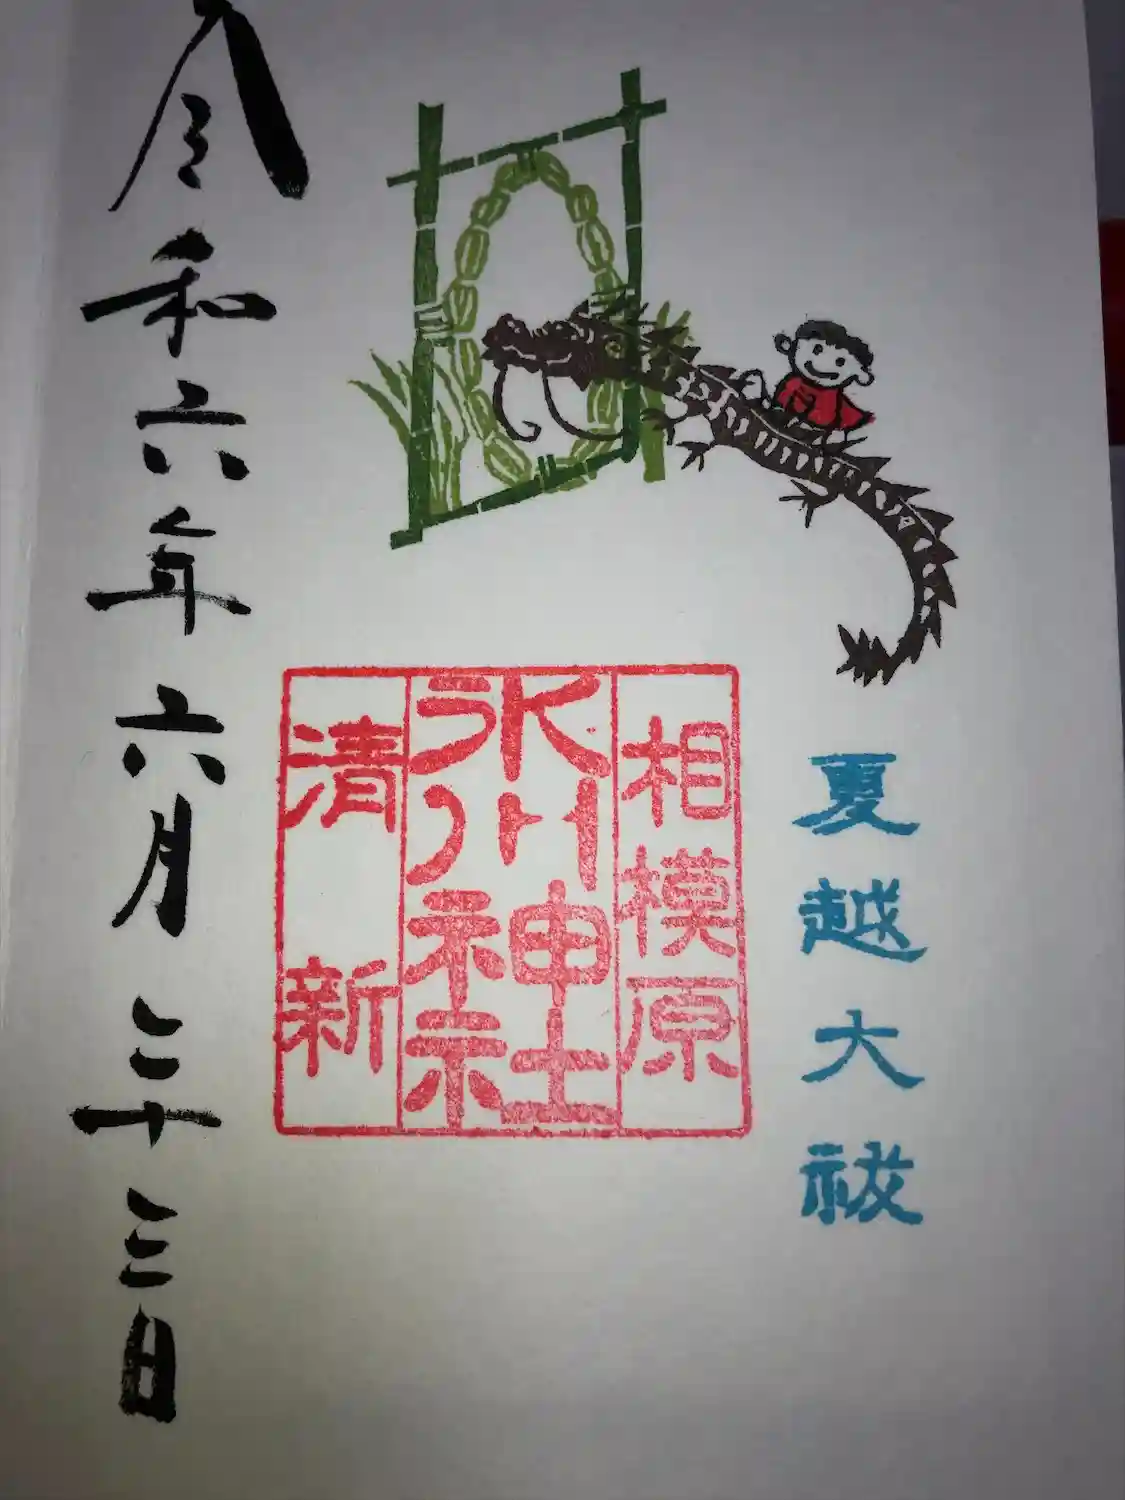 夏越大祓
相模原
氷川神社
清新
令和六年六月二十三日